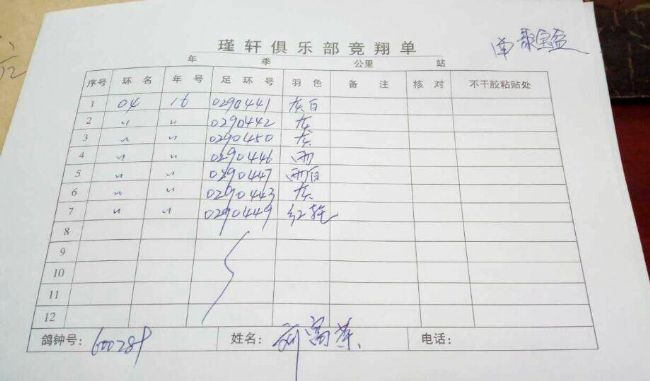 瑾轩俱乐部竞翔单
南 聚宝盆
年 季 公里 站
序号 环名 年号 足环号 羽色 备注 核对 不干胶粘贴处
1 04 16 0290441 灰白
2 〃 〃 0290442 灰
3 〃 〃 0290450 灰
4 〃 〃 0290446 雨
5 〃 〃 0290447 雨白
6 〃 〃 0290443 灰
7 〃 〃 0290449 红
8
9
10
11
12
鸽钟号: 600289 姓名: 电话: